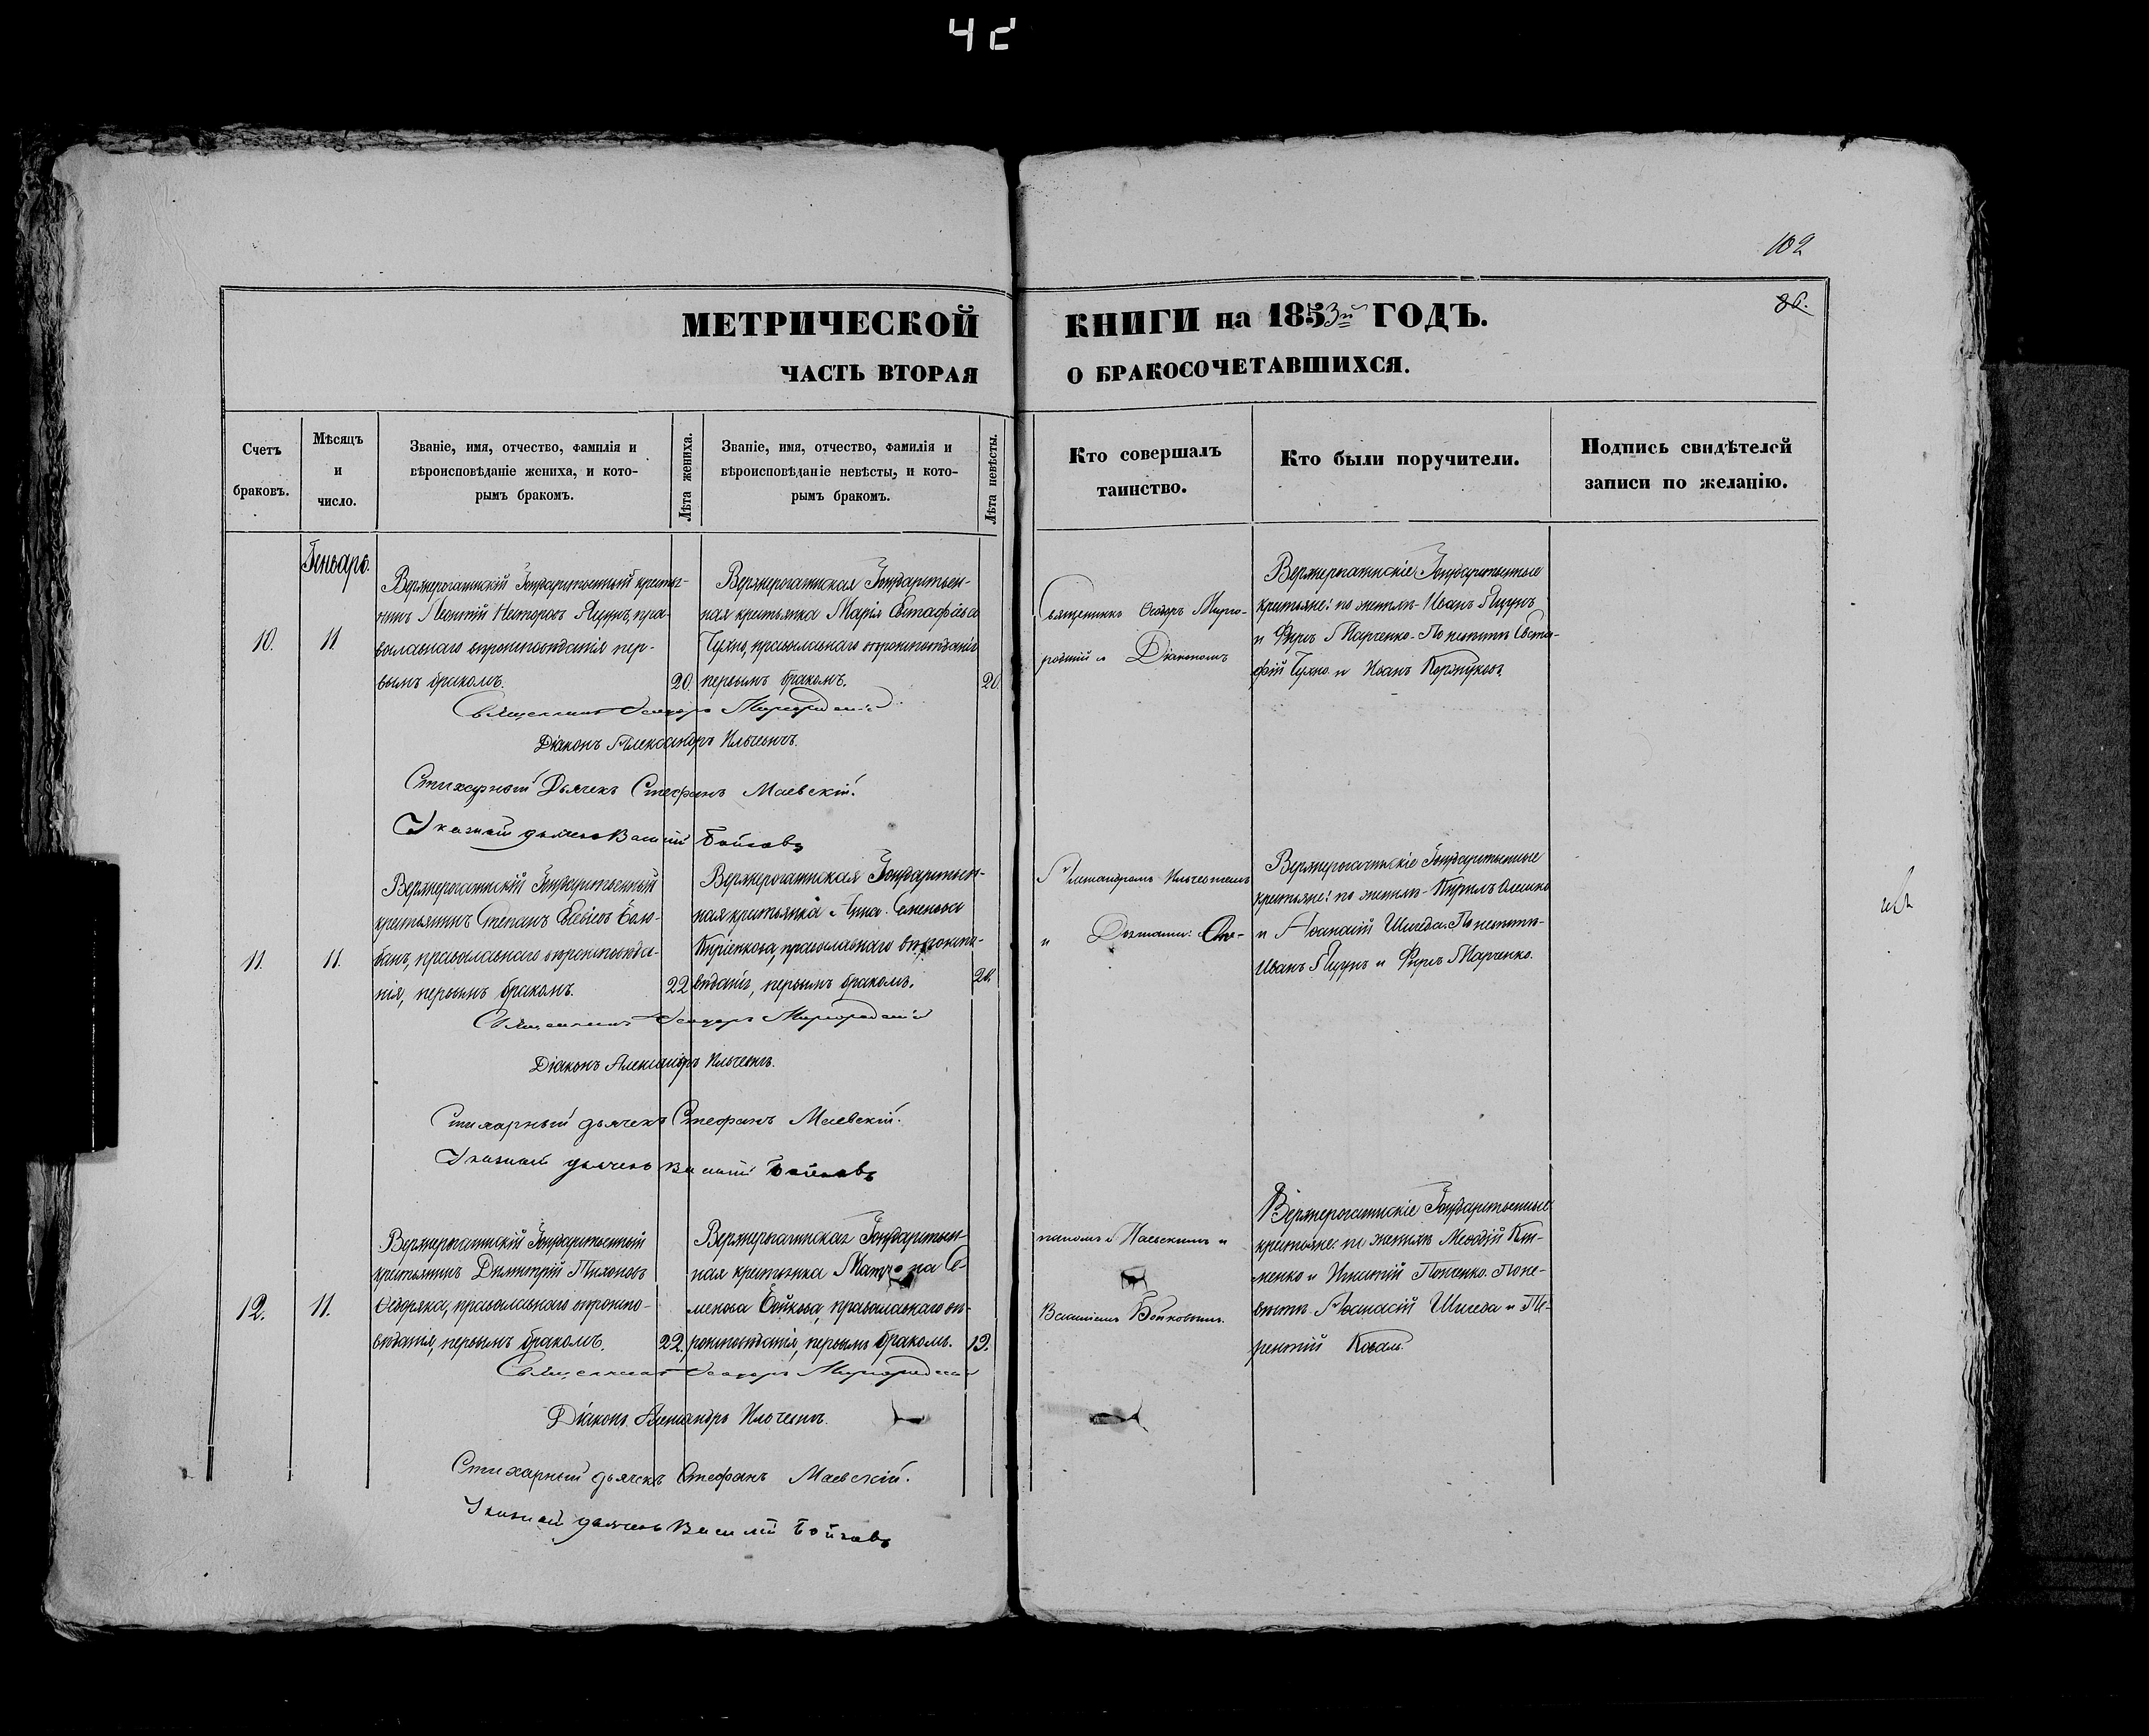 102
86.
МЕТРИЧЕСКОЙ КНИГИ на 1853й ГОДЪ.
ЧАСТЬ ВТОРАЯ О БРАКОСОЧЕТАВШИХСЯ.
Счетъ браковъ.
Мѣсяцъ и число.
Званіе, имя, отчество, фамилія и
вѣроисповѣданіе жениха, и кото-
рымъ бракомъ.
Лѣта жениха.
Званіе, имя, отчество, фамилія и
вѣроисповѣданіе невѣсты, и кото-
рымъ бракомъ.
Лѣта невѣсты.
Кто совершалъ
таинство.
Кто были поручители.
Подпись свидѣтелей
записи по желанію.
Генварь.
10.
11.
Верхнерогачикскій Государственный кресть-
янинъ Леонтій Яцунъ, пра-
вославнаго вѣроисповѣданія пер-
вымъ бракомъ.
20.
Верхнерогачикская Государствен-
ная крестьянка Марія Евстафіева
Чухно, православнаго вѣроисповѣданія
первымъ бракомъ.
20.
Священникъ Ѳеодоръ Мирго-
родскій и Діакономъ
Верхнерогачикскіе Государственные
крестьяне: по женихѣ - Иванъ Яцунъ
и Фирсъ Марченко. По невѣстѣ Евста-
фій Чухно и Иванъ
Священникъ Ѳеодоръ Миргородскій
Діаконъ Александръ Ильчевичъ.
Стихарный Дьячекъ Стефанъ Маевскій.
Указный дьячекъ Василій Бойковъ
11.
11.
Верхнерогачикскій Государственный
крестьянинъ Степанъ Боло-
банъ, православнаго вѣроисповѣда-
нія, первымъ бракомъ.
22
Верхнерогачикская Государствен-
ная крестьянка Анна Семенова
Киріенкова, православнаго вѣроиспо-
вѣданія, первымъ бракомъ.
20.
Александромъ Ильчевичемъ
и Дьячками: Сте-
Верхнерогачикскіе Государственные
крестьяне: по женихѣ - Кирилъ
и Аѳанасій Шигеда. По невѣстѣ-
Иванъ Яцунъ и Фирсъ Марченко.
Священникъ Ѳеодоръ Миргородскій
Діаконъ Александръ Ильчевичъ.
Стихарный дьячекъ Стефанъ Маевскій.
Указный дьячекъ Василій Бойковъ
12.
11.
Верхнерогачикскій Государственный
крестьянинъ Димитрій Тихоновъ
Ѳедоряка, православнаго вѣроиспо-
вѣданія, первымъ бракомъ.
22.
Верхнерогачикская Государствен-
ная крестьянка Матрона Се-
менова Бойкова, православнаго вѣ-
роисповѣданія, первымъ бракомъ.
19.
паномъ Маевскимъ и
Василіемъ Бойковымъ.
Верхнерогачикскіе Государственные
крестьяне: по женихѣ Меѳодій
и Игнатій По не-
вѣстѣ Аѳанасій Шигеда и Те-
рентій Коваль.
Священникъ Ѳеодоръ Миргородскій
Діаконъ Александръ Ильчевичъ.
Стихарный дьячекъ Стефанъ Маевскій.
Указный дьячекъ Василій Бойковъ